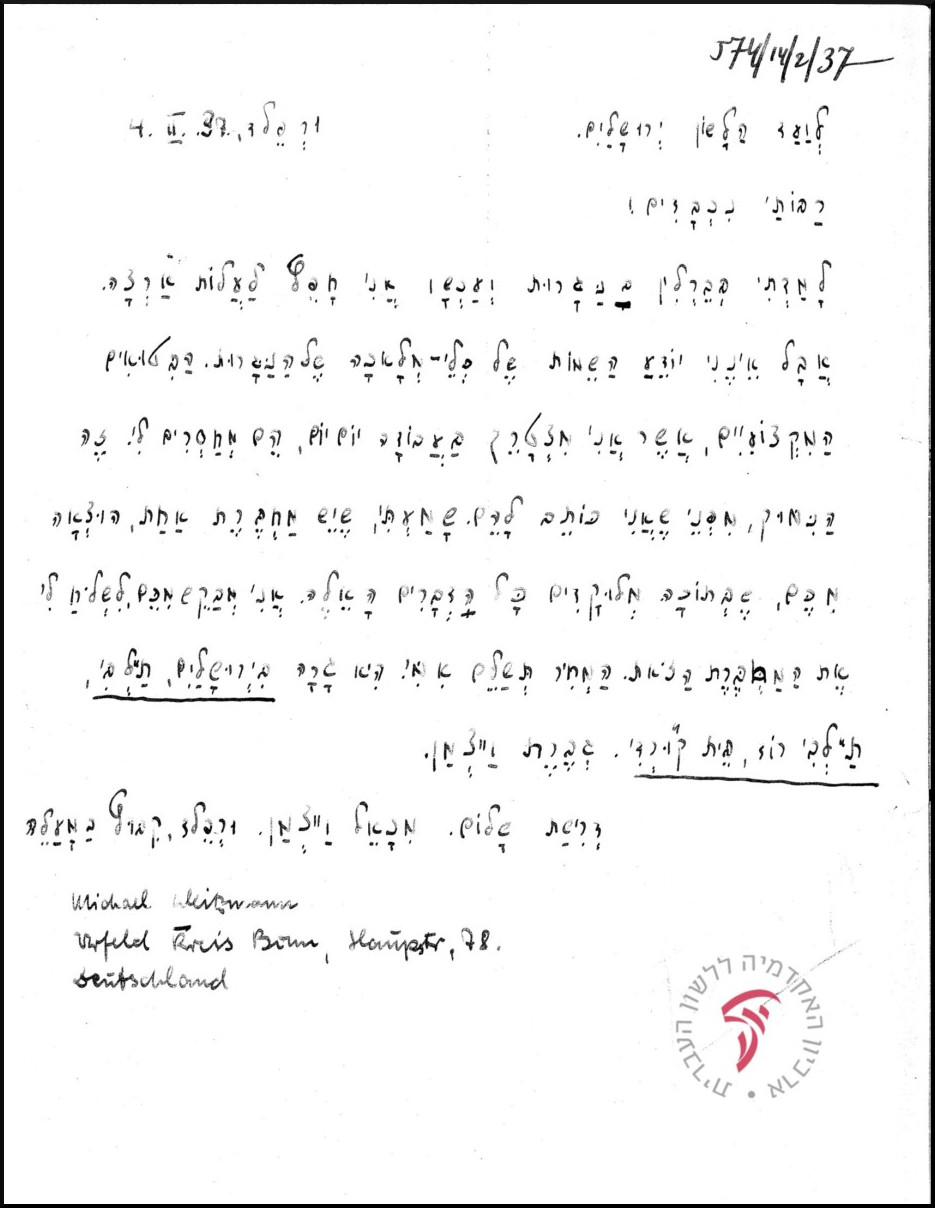 574/14/2/37
לְוַעַד הַלָשׁוֹן יְרוּשָׁלַיִם. וּרְפֶלד, 4. II. 37.
רַבּוֹתַי נִכְבָּדִים!
לָמַדְתִּי בְּבֶּרְלִין בַּנַגָרוּת וְעַכְשָׁו אֲנִי חָפֵץ לַעֲלוֹת אַרְצָה.
אֲבָל אֵינֶנִי יוֹדֵעַ הַשֵׁמוֹת שֶׁל כְּלֵי-מְלָאכָה שֶׁל הַנַגָרוּת. הַבִּטוּאִים
הַמִקְצוֹעִיִים, אֲשֶׁר אֲנִי מִצְטָרֵךְ בַּעֲבוֹדָה יוֹם יוֹם, הֵם מְחַסְרִים לִי. זֶה
הַנִמוּק, מִפְּנֵי שֶׁאֲנִי כּוֹתֵב לָהֶם. שָׁמַעְתִּי, שֶׁיֵשׁ מַחְבֶּרֶת אַחַת, הוּצְאָה
מִכֶּם, שֶׁבְּתוֹכָה מְלוּקָדִים כָּל הַדְבָרִים הָאֵלֶה. אֲנִי מְבַקֵשׁ מִכֶּם, לִשְׁלִיחַ לִי
אֶת הַמַחְבֶּרֶת הַזֹאת. הַמְחִיר תְּשַׁלֵם אִמִי. הִיא גָרָה בִּירוּשָׁלַיִם, תַּלְבִּי,
תַּלְבִּי רוֹד, בֵּית קוּרְדִי. גְבֶרֶת וַיְיצְמַן.
דְרִישַׁת שָׁלוֹם. מִכָאֵל וַיְיצְמַן. וּרְפֶלד, קְבוּץ בַּמַעֲלֶה
Michael Weitzmann
Urfeld Kreis Bonn, Hauptstr, 78.
Deutschland
ארכיון האקדמיה ללשון העברית